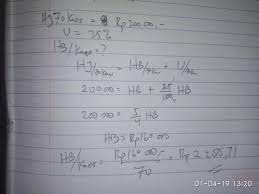 Hj 70 Kaos = Rp 200.000,-
U = 25%
HB/Kaos = ?
HJ/70 Kaos = HB/70 Kaos + U/70 Kaos
200.000 = HB + 25/100 HB
200.000 = 5/4 HB
HB = Rp 160.000
HB/Kaos = Rp 160.000,- / 70 = Rp 2.285,71
01-04-19 13:20